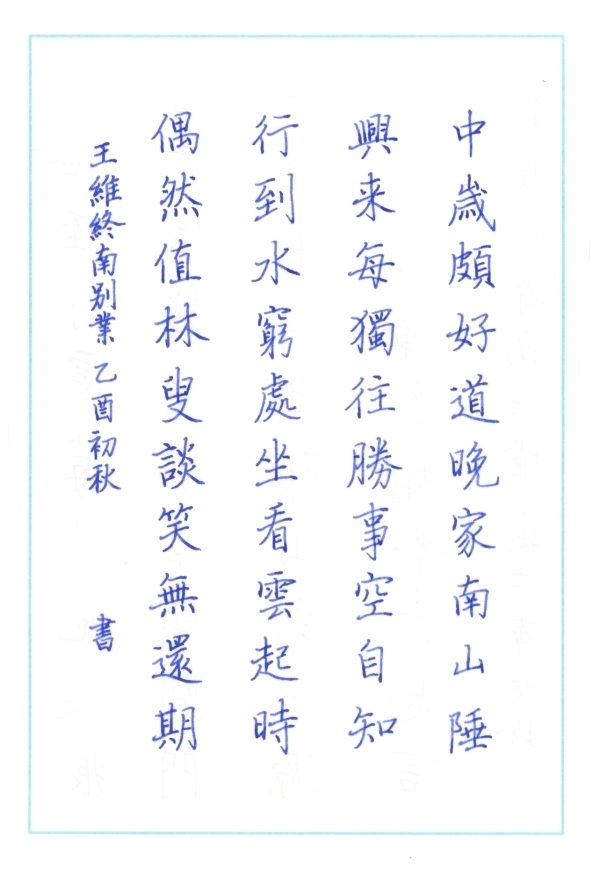 中歲頗好道晚家南山陲
興来每獨往勝事空自知
行到水窮處坐看雲起時
偶然值林叟談笑無還期
王維終南别業 乙酉初秋 書